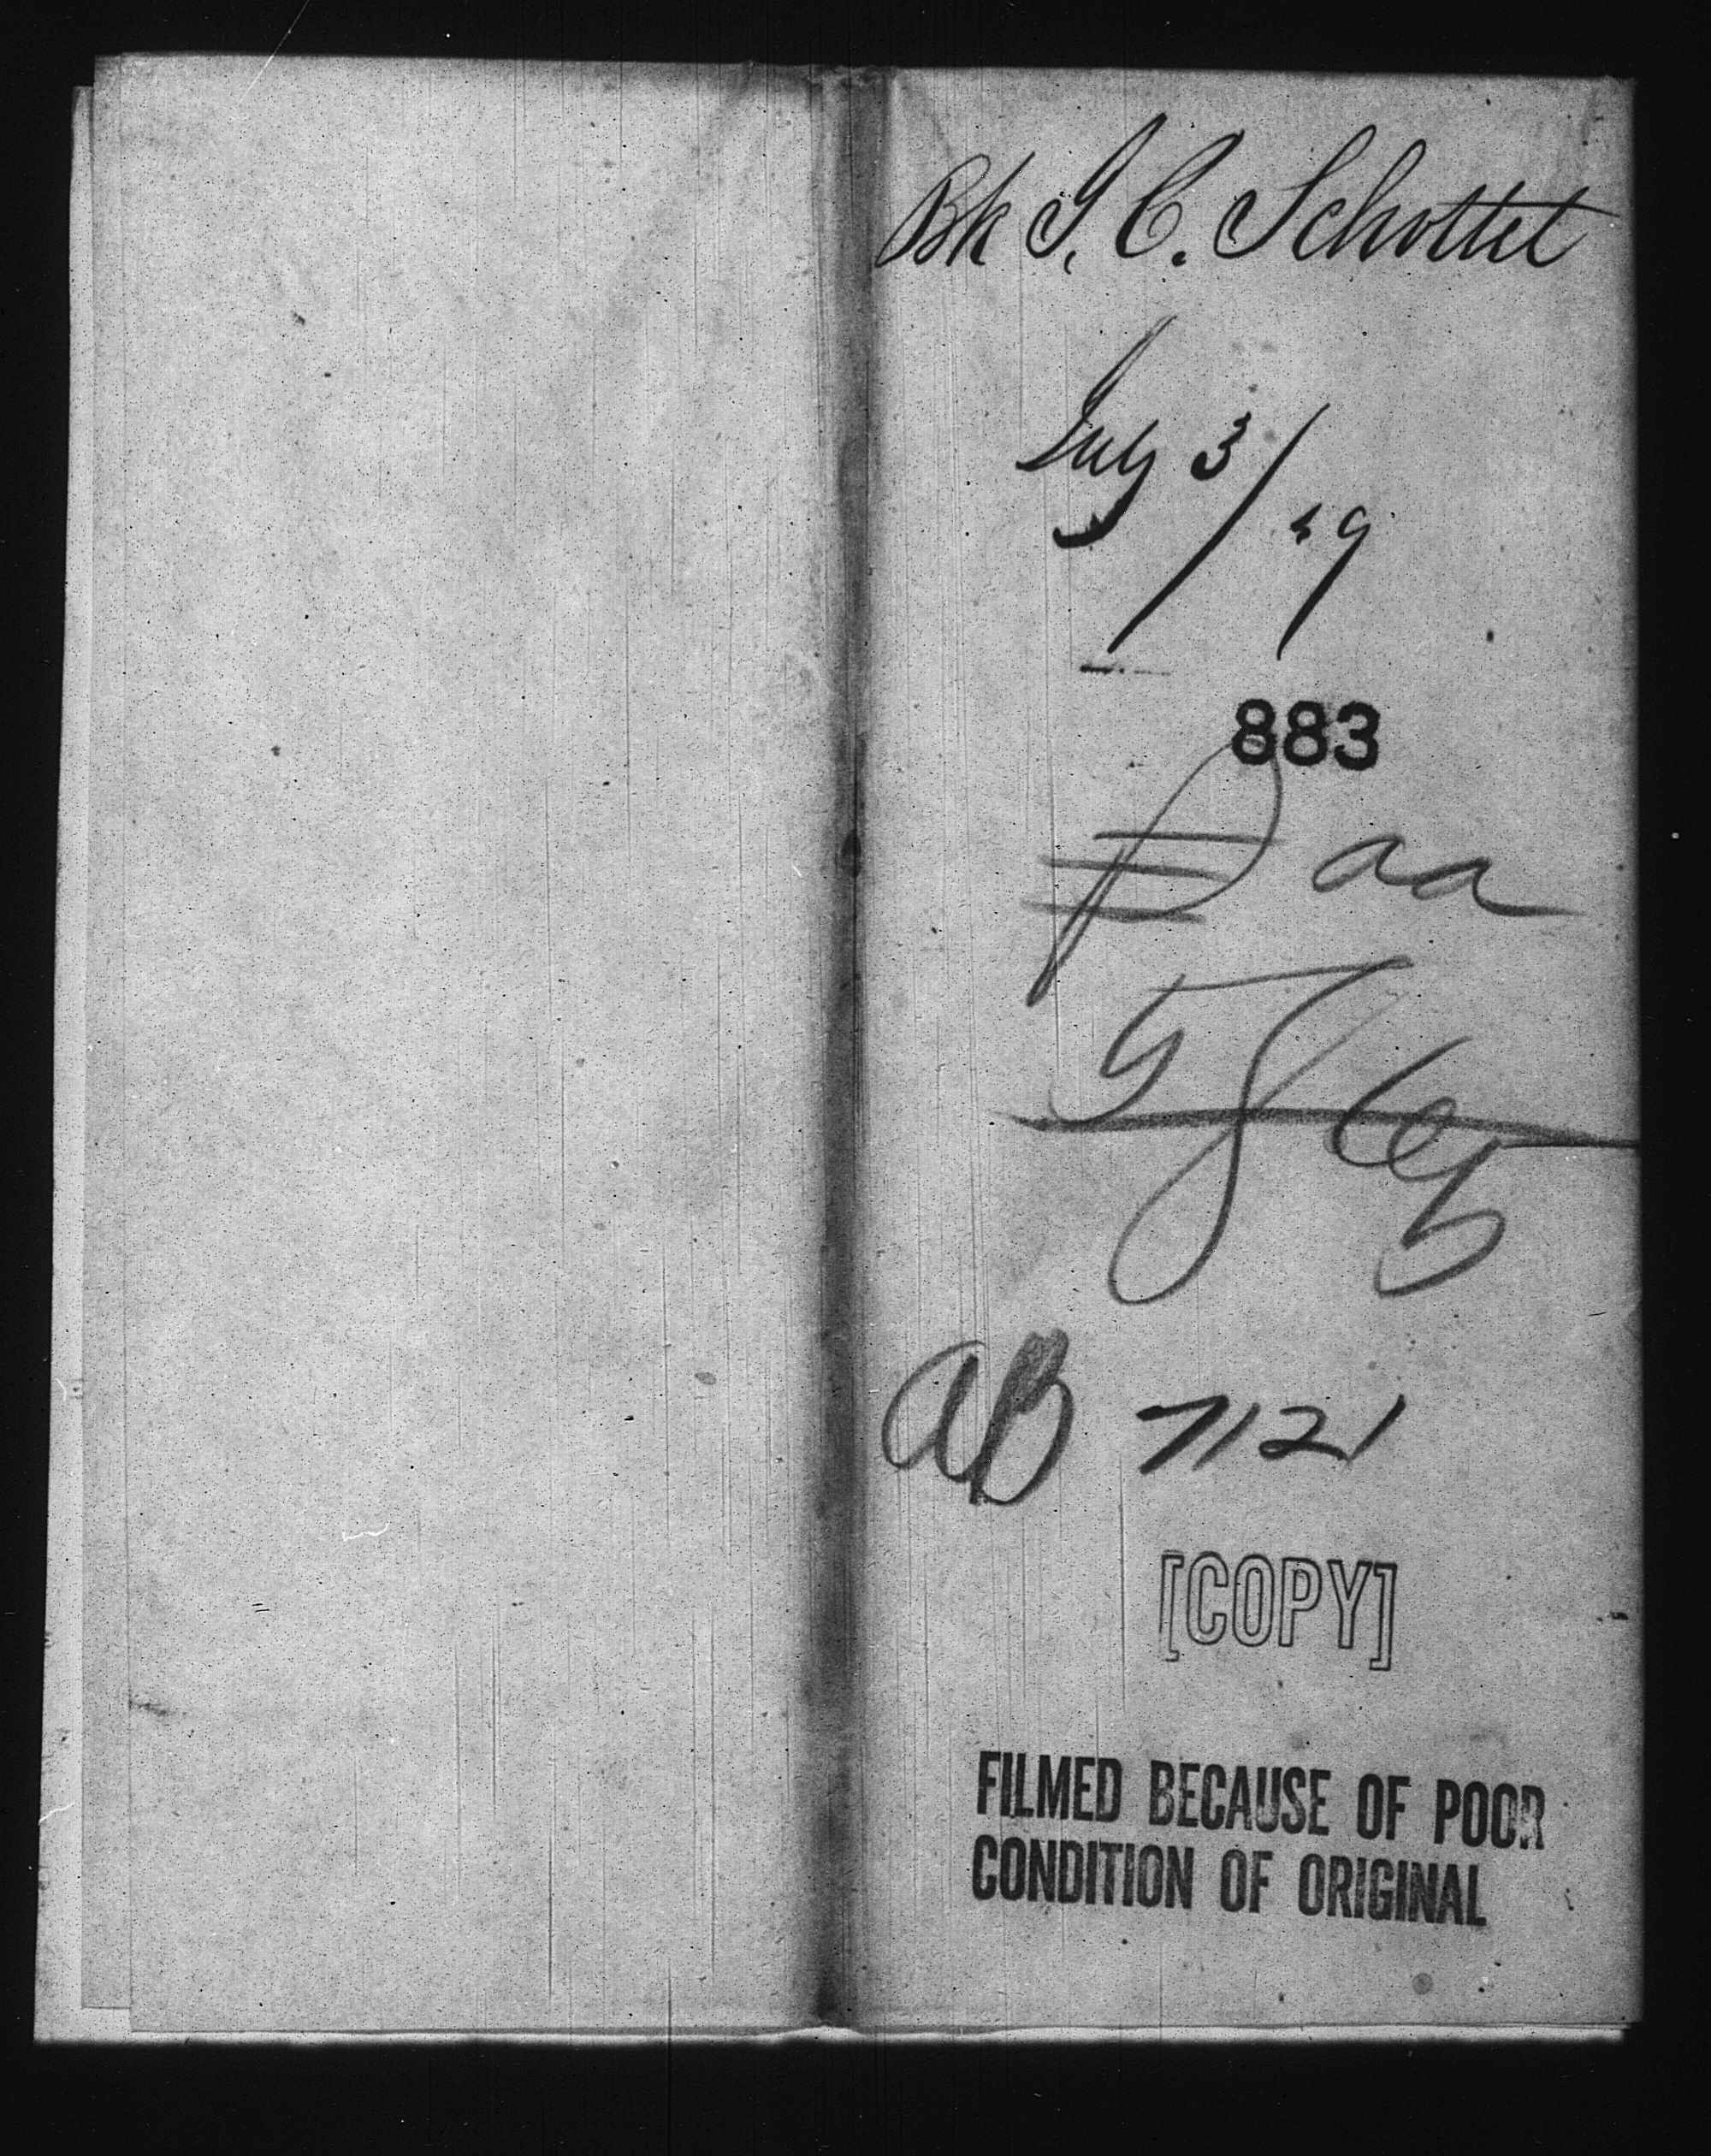 Bk J. C. Schottel
July 3/
49
883
aa
AB 7121
[COPY]
FILMED BECAUSE OF POOR
CONDITION OF ORIGINAL